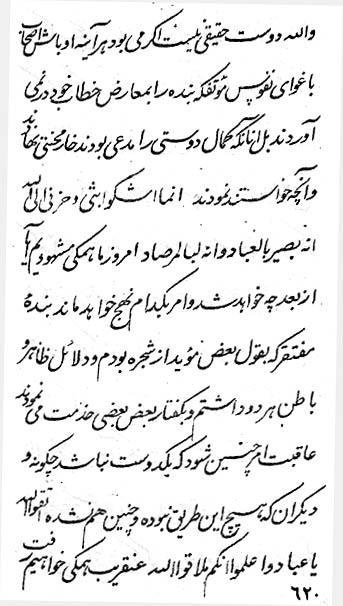 والله دوست حقیقی نیست اگر می بود هرآینه اوباش اصحاب
باغوای نفوس مؤتفکه بنده را بمعارض خطاب خود در نمی
آوردند بل انانکه کمال دوستی را مدعی بودند خار محنتی نهادند
و آنچه خواستند نمودند انما اشکوا بثی و حزنی الی الله
انه بصیر بالعباد و انه لبالمرصاد امروز ما همگی مشهودیم آیا
از بعد چه خواهد شد و امر بکدام نهج خواهد ماند بنده
مفتقر که بقول بعض مؤید از شجره بودم و دلائل ظاهر و
باطن هر دو داشتم و بگفتار بعض بعضی خدمت می نمودند
عاقبت امر چنین شود که یکدوست نباشد چگونه و
دیگران که هیچ این طریق نبوده و چنین هم نشده اتقوا الله
یا عباد و اعلموا انکم ملاقوا الله عنقریب همگی خواهیم رفت
۶۲۰